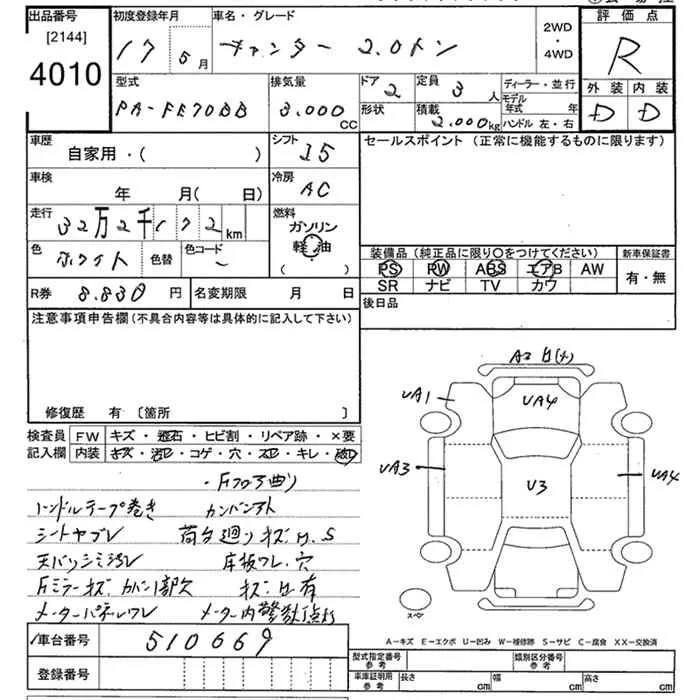 出品番号 初度登録年月 車名・グレード 2WD ・ 4WD 評価点
[2144]
4010
17年5月 キャンター 2.0トン R
型式 排気量 ドア 定員 ディーラー・並行 外装 内装
PA-FE70BB 3.000cc 2 3人 モデル年式 年 D D
形状 積載 2.000kg ハンドル 左・右
車歴 シフト セールスポイント (正常に機能するものに限ります)
自家用・( ) I5
車検 冷房
年 月( 日) AC
走行 燃料
32万2千172km ガソリン
軽油
( )
色 色替 色コード
ホワイト －
装備品(純正品に限り○をつけてください) 新車保証書
PS PW ABS エアB AW 有・無
SR ナビ TV カワ
R券 8.830円 名変期限 月 日 後日品
注意事項申告欄(不具合内容等は具体的に記入して下さい)
修復歴 有 [箇所 ]
検査員 FW キズ・飛石・ヒビ割・リペア跡・×要
記入欄 内装 キズ・汚レ・コゲ・穴・スレ・キレ・破レ
・Fフロア曲り
ハンドルテープ巻き カンバン外
シートヤブレ 荷台廻りキズ.U.S
天バリシミ汚レ 床板ワレ.穴
Fミラーキズ.カバー1部欠 キズ.凹有
メーターパネルワレ メーター内警告灯点灯
A2 凹(メ)
UA1
UA4
UA3
U3
UA4
スペア
A－キズ E－エクボ U－凹み W－補修跡 S－サビ C－腐食 XX－交換済
車台番号 510669
登録番号
型式指定番号 参考 類別区分番号 参考
車庫証明用 参考 長さ cm 幅 cm 高さ cm